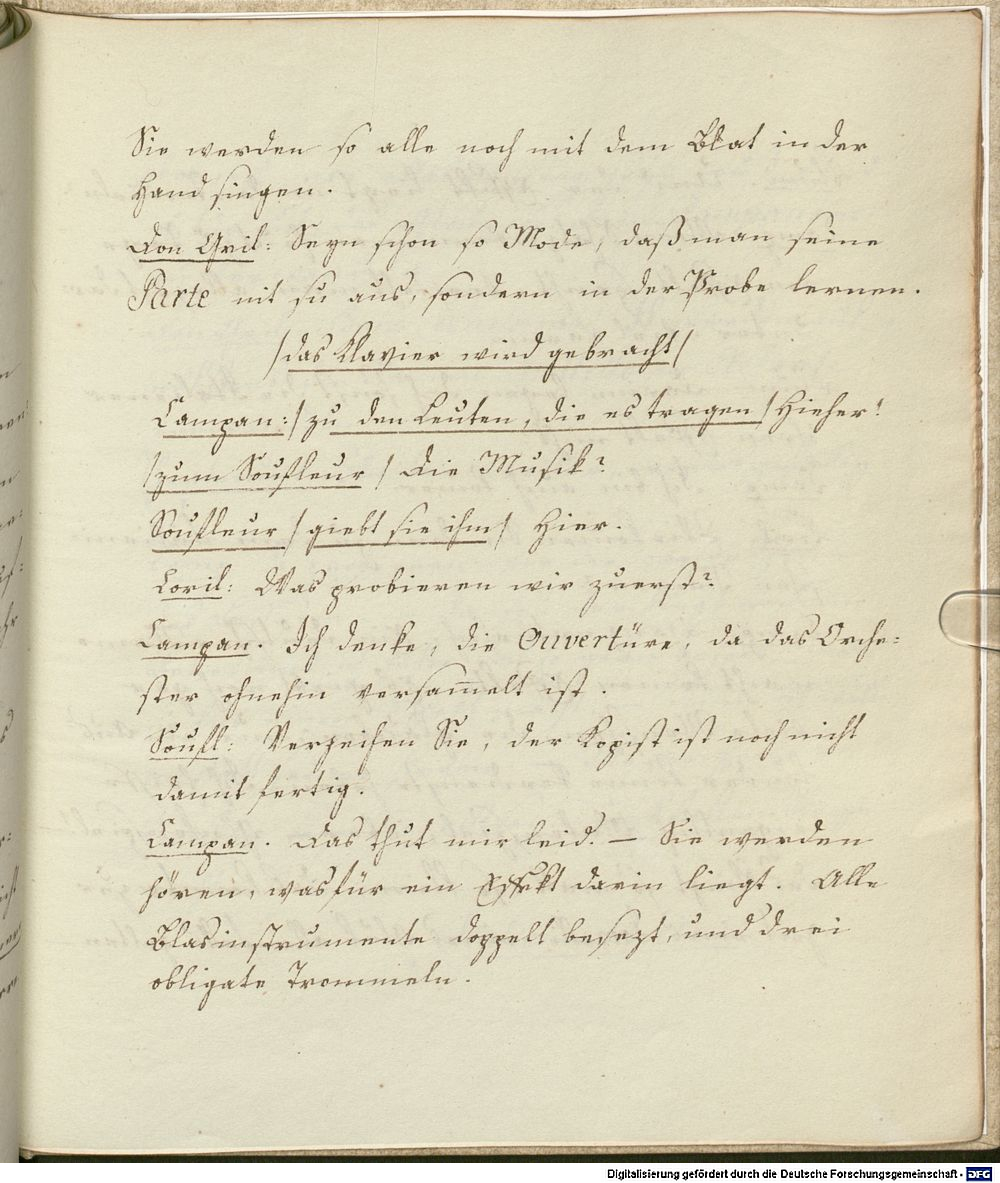 Sie werden so alle noch mit dem Blat in der
Hand singen.
Don Gril: Seyn schon so Mode, daß man seine
Parte nit zu aus, sondern in der Probe lernen.
/das Klavier wird gebracht/
Campan:/ zu den Leuten, die es tragen / Hieher!
/zum Soufleur / Die Musik?
Soufleur / giebt sie ihm / Hier.
Loril: Was probieren wir zuerst?
Campan. Ich denke, die Ouvertüre, da das Orche=
ster ohnehin versam̅elt ist.
Soufl: Verzeihen Sie, der Kopist ist noch nicht
damit fertig.
Campan. Das thut mir leid. – Sie werden
hören, was für ein Effekt darin liegt. Alle
Blasinstrumente doppelt besezt, und drei
obligate Trommeln.
Digitalisierung gefördert durch die Deutsche Forschungsgemeinschaft - DFG